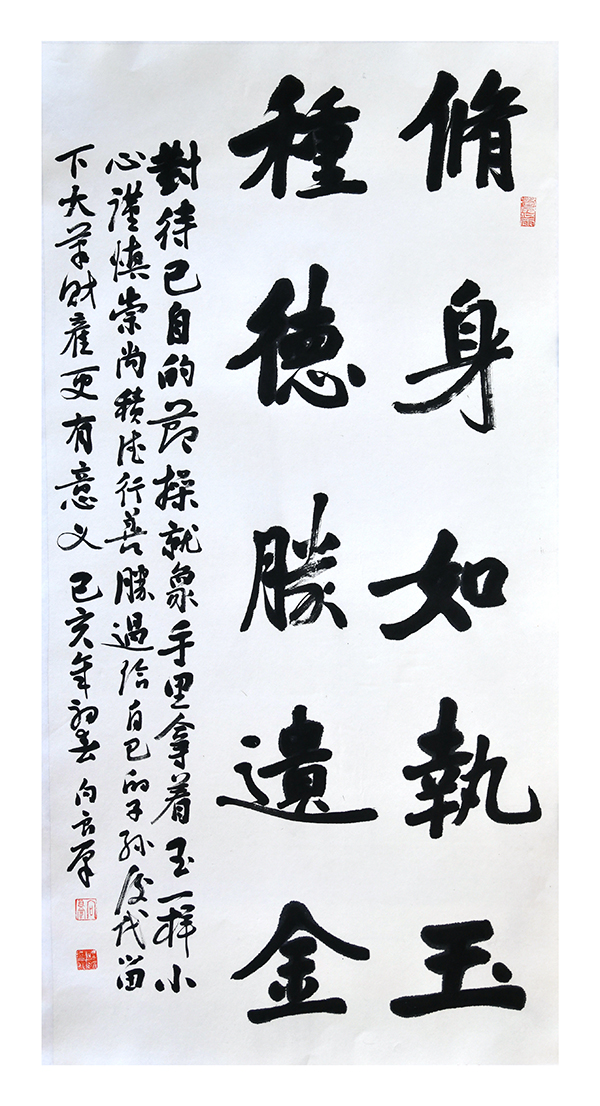 脩身如執玉
種德勝遺金
對待己自的節操就象手里拿着玉一樣小
心謹慎崇尚積德行善勝過給自己的子孫後代留
下大筆財產更有意义 己亥年初春 向